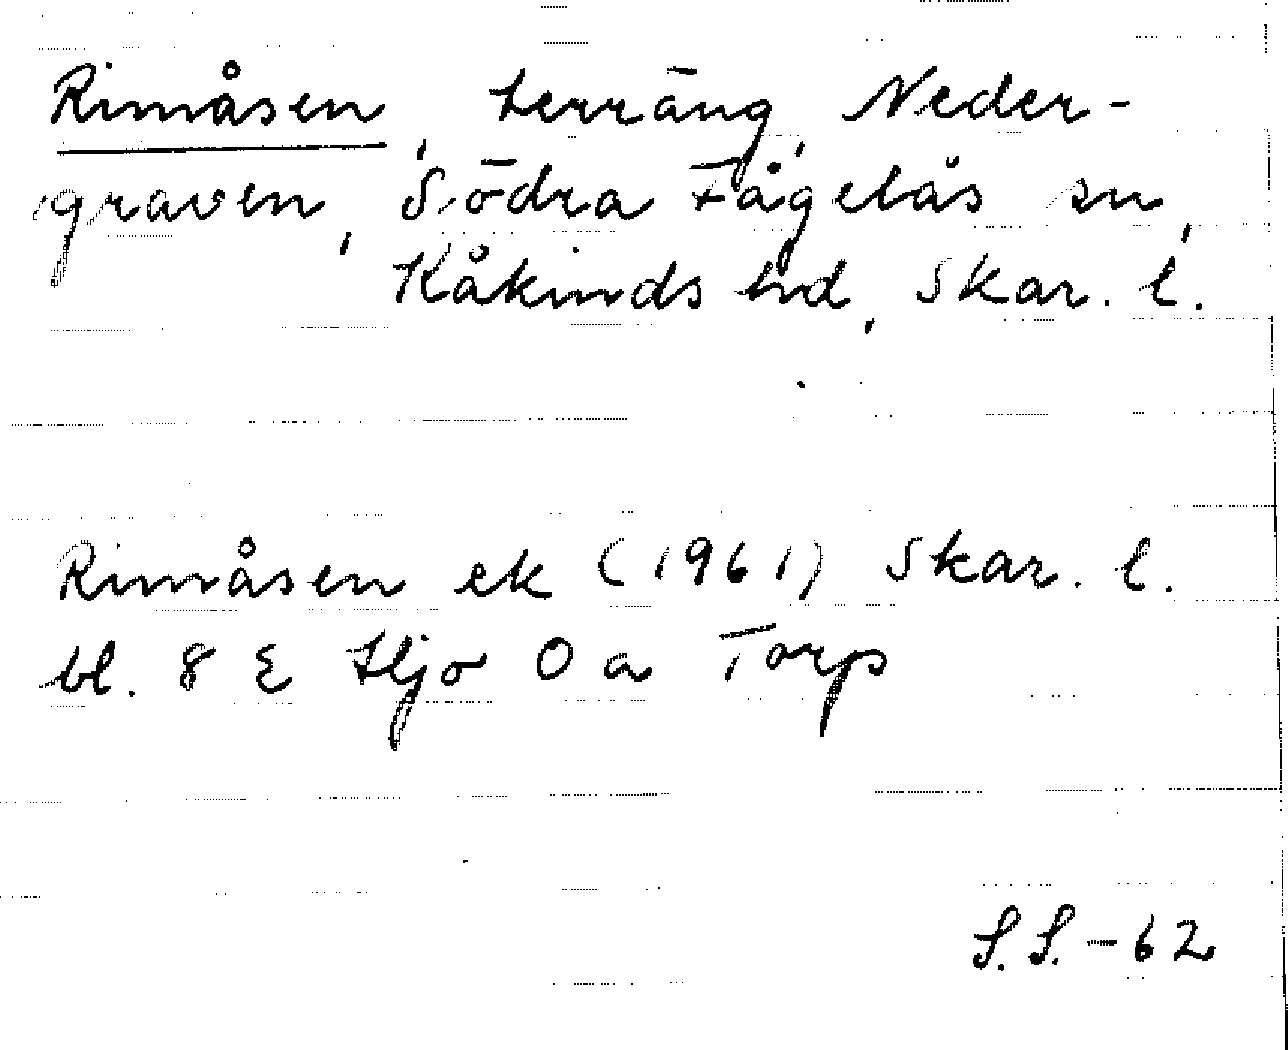 Rimåsen, terräng, Neder-
graven, Södra Fågelås sn,
Kåkinds hd, Skar. l.
Rimåsen ek (1961) Skar. l.
bl. 8 E Hjo 0 a Torp
S.S.-62